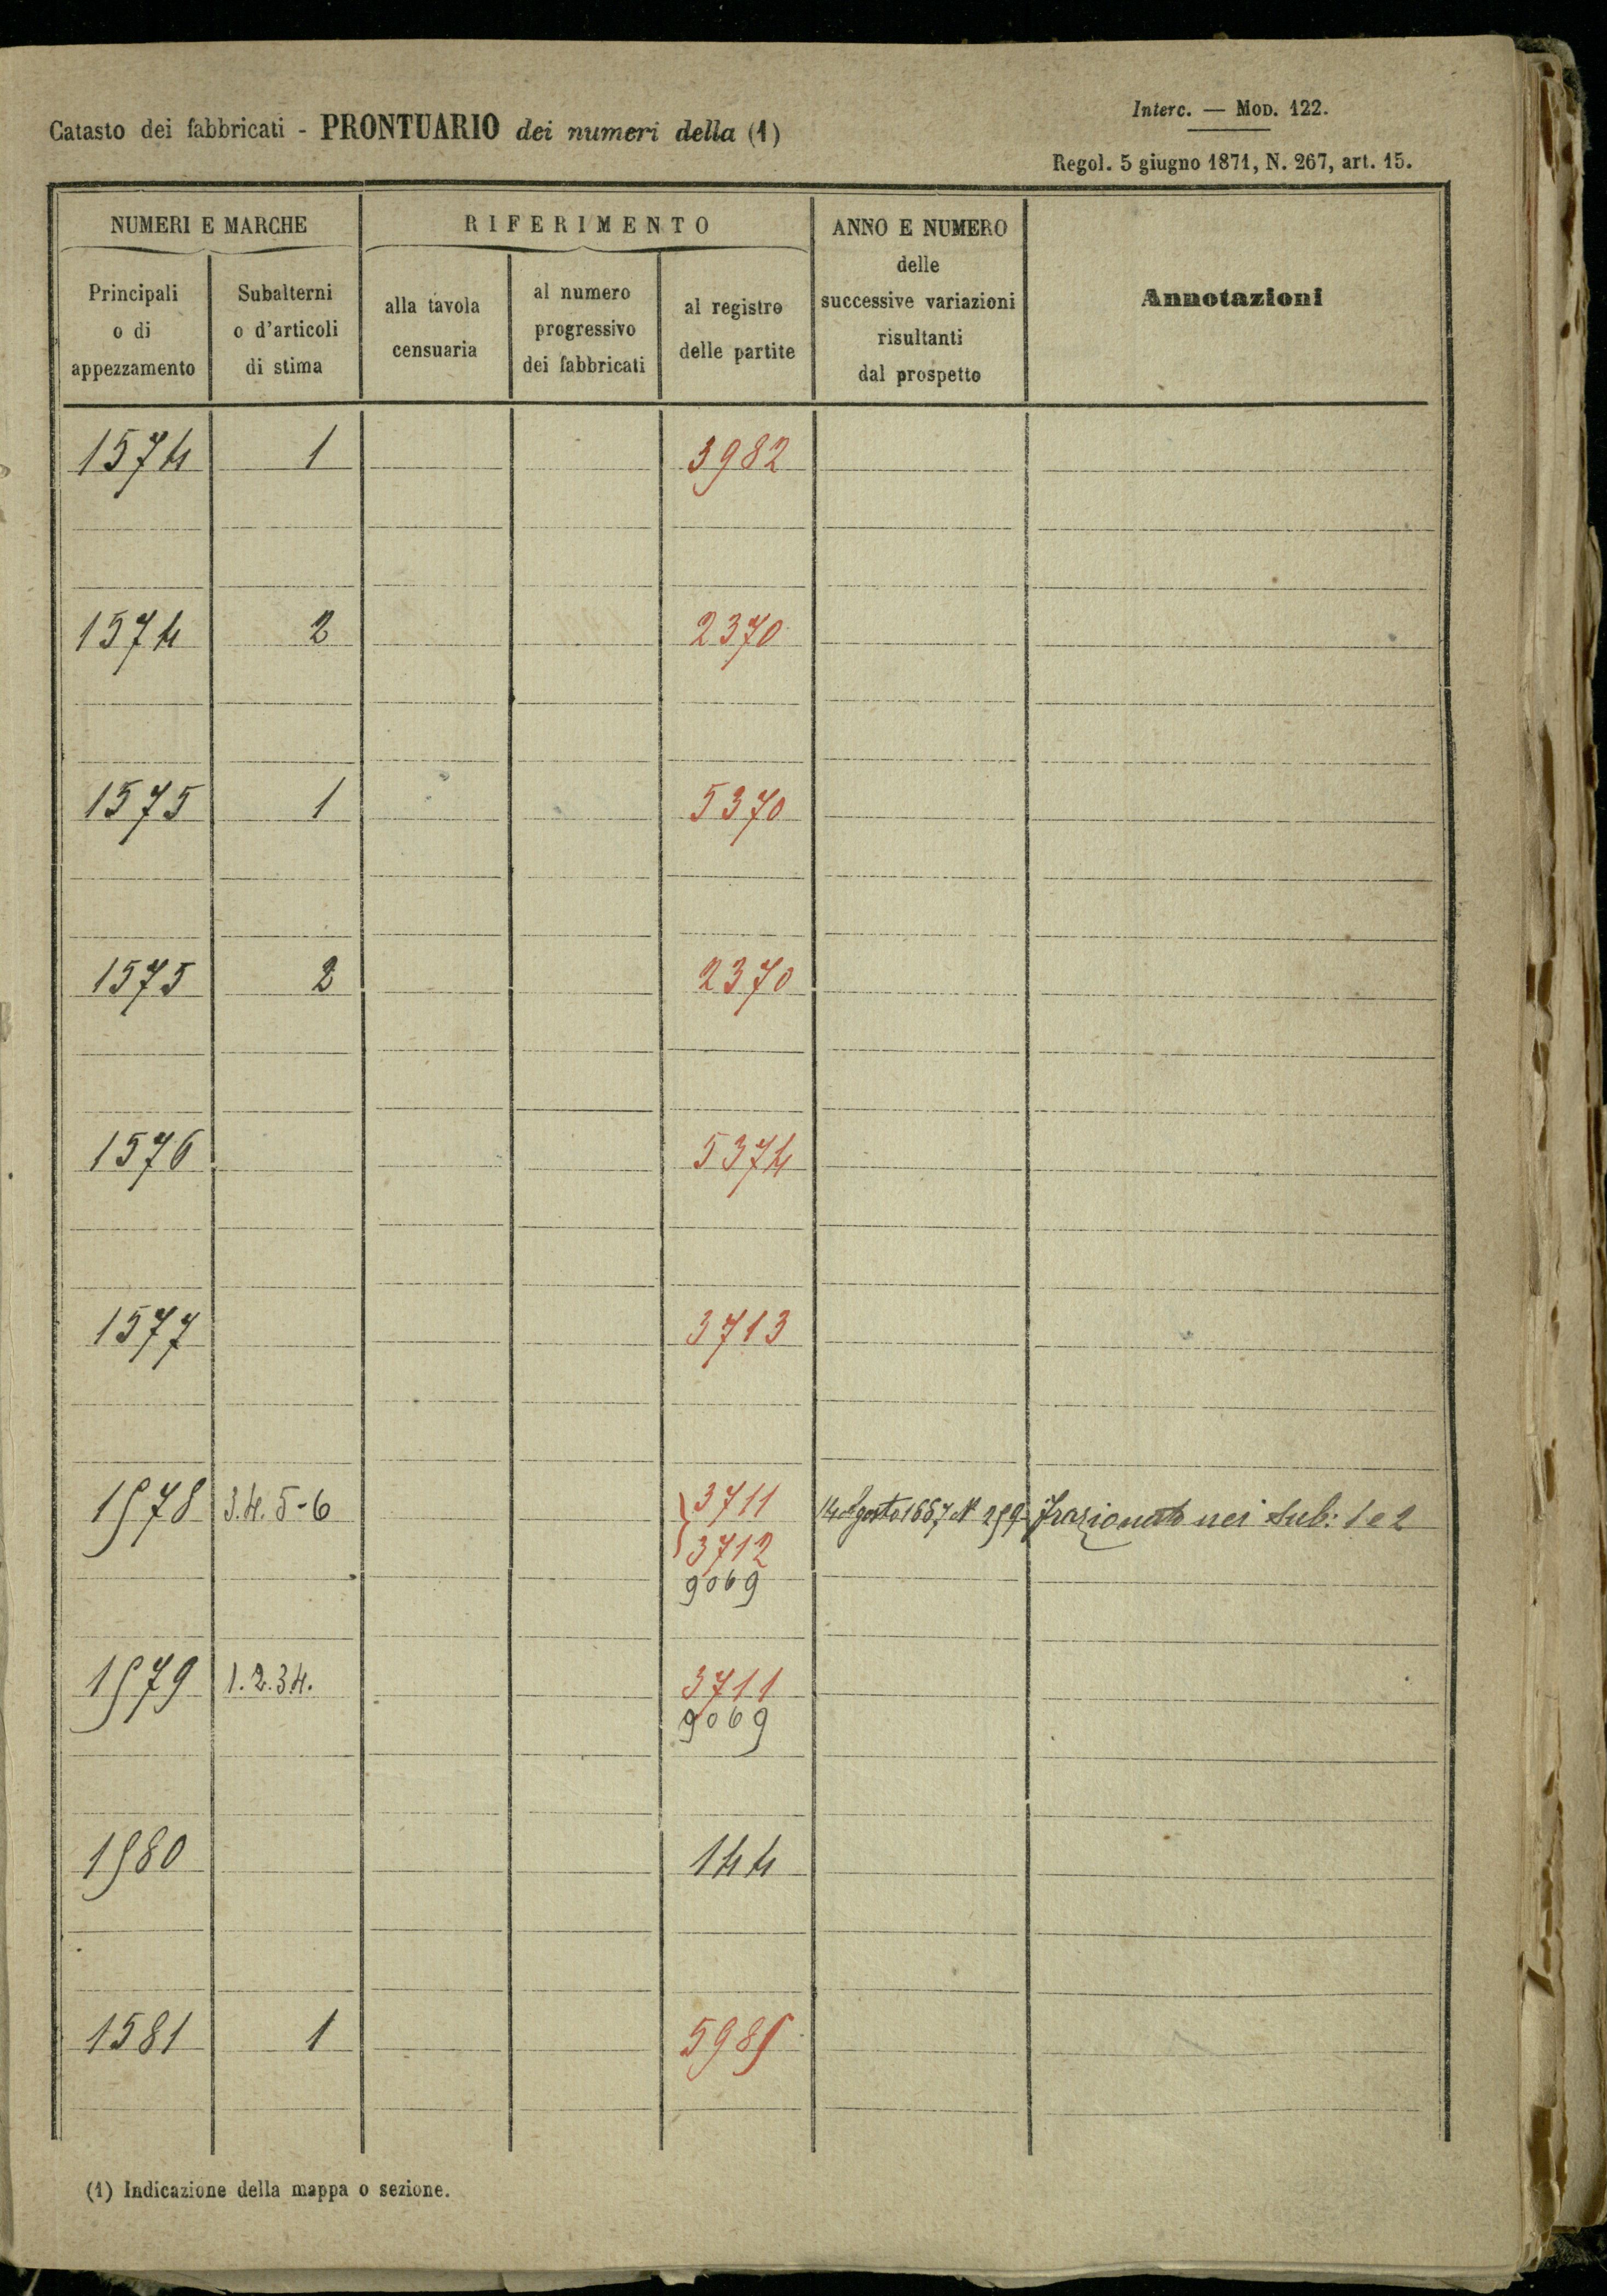 Catasto dei fabbricati - PRONTUARIO dei numeri della (1)
Interc. — MOD. 122.
Regol. 5 giugno 1871, N. 267, art. 15.
NUMERI E MARCHE
RIFERIMENTO
ANNO E NUMERO
delle
successive variazioni
risultanti
dal prospetto
Annotazioni
Principali
o di
appezzamento
Subalterni
o d'articoli
di stima
alla tavola
censuaria
al numero
progressivo
dei fabbricati
al registro
delle partite
1574 1 3982
1574 2 2370
1575 1 5370
1575 2 2370
1576 5374
1577 3713
1578 3.4.5-6 3711 14 Agosto N 299 Frazionato nei Sub: 1 e 2
3712
9069
1579 1.2.34. 3711
9069
1580 144
1581 1 5985
(1) Indicazione della mappa o sezione.